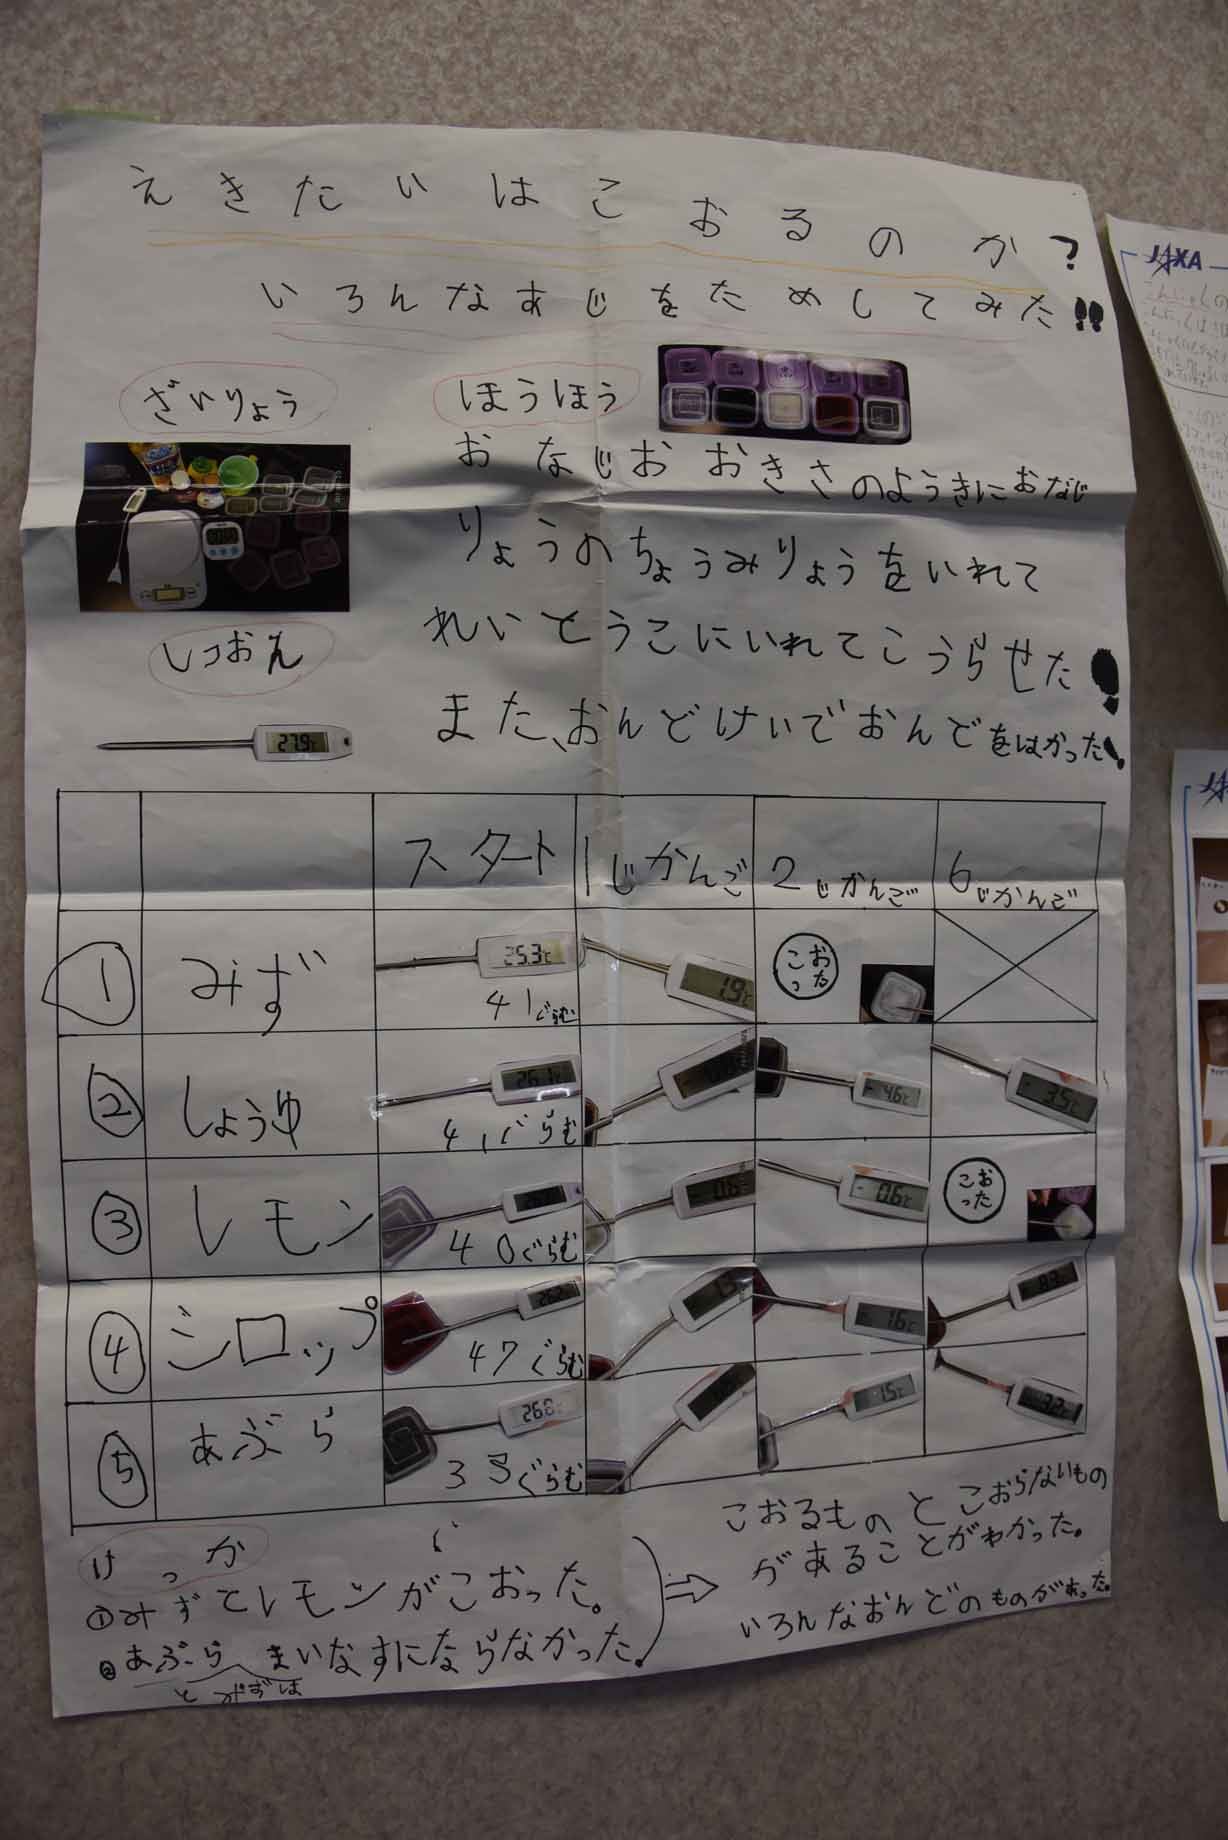 えきたいはこおるのか?
いろんなあじをためしてみた!!
ざいりょう
ほうほう
おなじおおきさのようきにおなじ
りょうのちょうみりょうをいれて
れいとうこにいれてこうらせた!
また、おんどけいでおんどをはかった!
しつおん
27.9℃
スタート 1じかんご 2じかんご 6じかんご
① みず 25.3℃ 41ぐらむ 1.9℃ こおった
② しょうゆ 26.1℃ 41ぐらむ -4.6℃ -3.5℃
③ レモン 40ぐらむ -0.6 -0.6℃ こおった
④ シロップ 26.2 47ぐらむ 1.6℃
⑤ あぶら 26.8 35ぐらむ 1.5℃
けっか
①みずとレモンがこおった。
②あぶらとみずはまいなすにならなかった。
⇒
こおるものとこおらないもの
があることがわかった。
いろんなおんどのものがあった。
JAXA